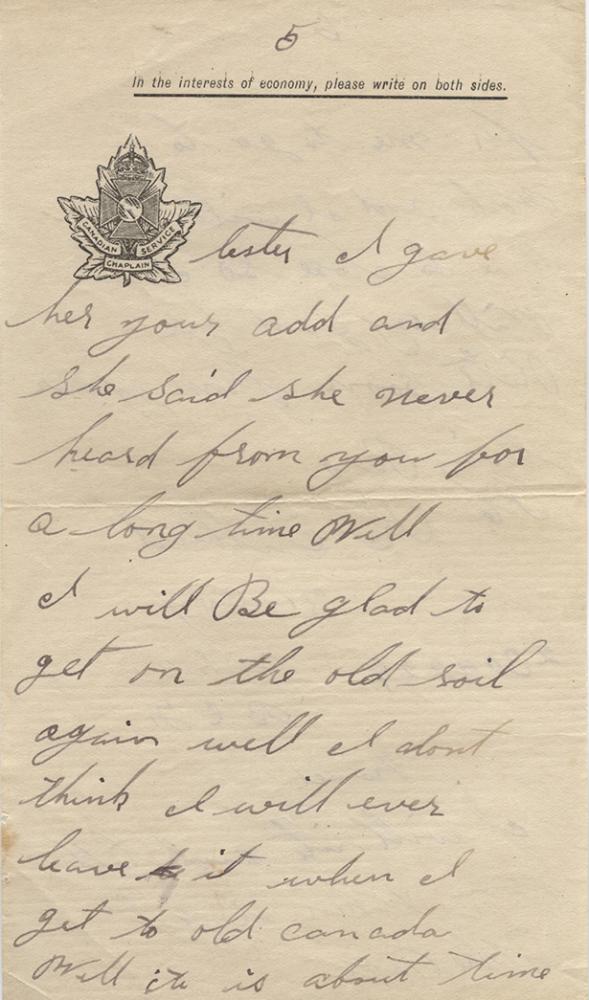 5
In the interests of economy, please write on both sides.
CANADIAN CHAPLAIN SERVICE
lester I gave
her your add and
she said she never
heard from you for
a long time Well
I will Be glad to
get on the old soil
again well I dont
think I will ever
leave it when I
get to old canada
Well it is about time